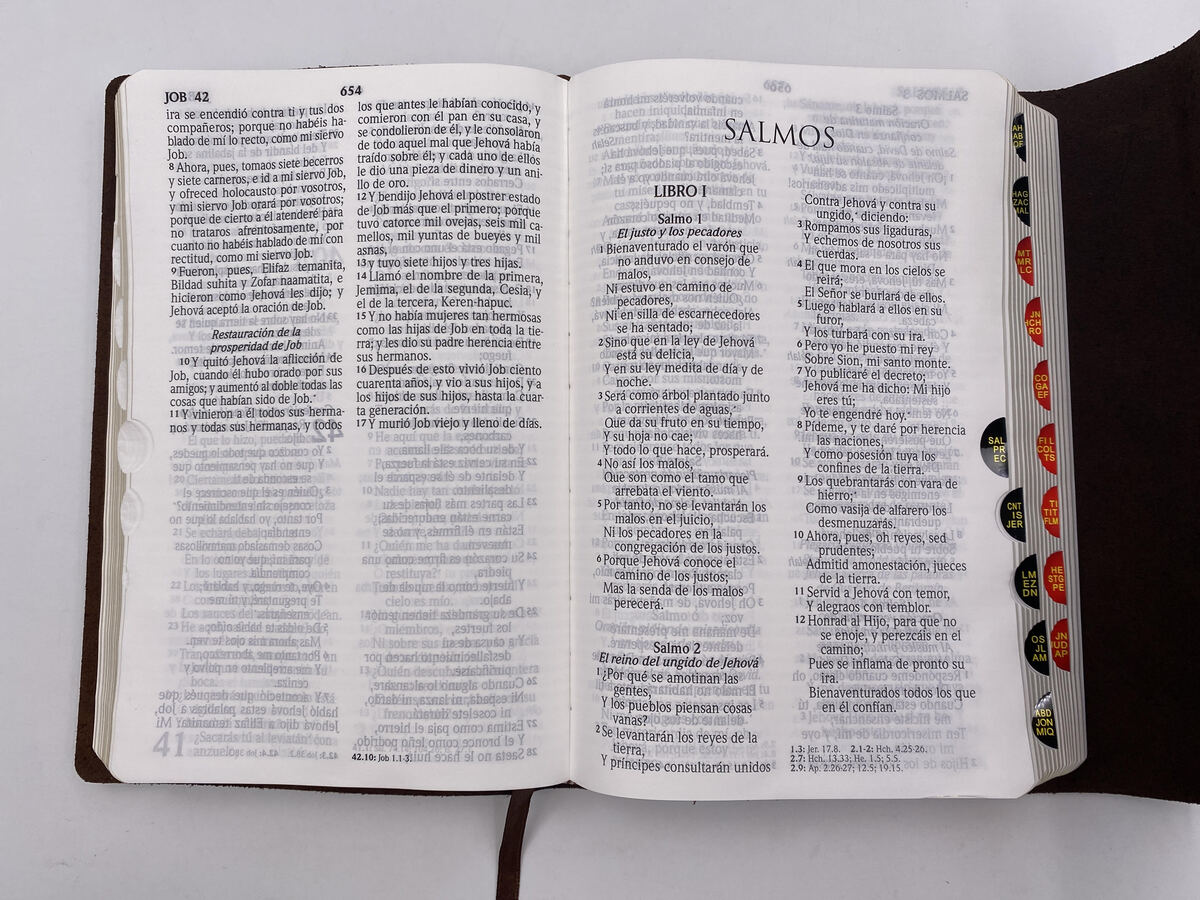 JOB 42
654
ira se encendió contra ti y tus dos
compañeros; porque no habéis ha-
blado de mí lo recto, como mi siervo
Job.
8 Ahora, pues, tomaos siete becerros
y siete carneros, e id a mi siervo Job,
y ofreced holocausto por vosotros,
y mi siervo Job orará por vosotros;
porque de cierto a él atenderé para
no trataros afrentosamente, por
cuanto no habéis hablado de mí con
rectitud, como mi siervo Job.
9 Fueron, pues, Elifaz temanita,
Bildad suhita y Zofar naamatita, e
hicieron como Jehová les dijo; y
Jehová aceptó la oración de Job.
Restauración de la
prosperidad de Job
10 Y quitó Jehová la aflicción de
Job, cuando él hubo orado por sus
amigos; y aumentó al doble todas las
cosas que habían sido de Job.*
11 Y vinieron a él todos sus herma-
nos y todas sus hermanas, y todos
los que antes le habían conocido, y
comieron con él pan en su casa, y
se condolieron de él, y le consolaron
de todo aquel mal que Jehová había
traído sobre él; y cada uno de ellos
le dio una pieza de dinero y un ani-
llo de oro.
12 Y bendijo Jehová el postrer estado
de Job más que el primero; porque
tuvo catorce mil ovejas, seis mil ca-
mellos, mil yuntas de bueyes y mil
asnas,
13 y tuvo siete hijos y tres hijas.
14 Llamó el nombre de la primera,
Jemima, el de la segunda, Cesia, y
el de la tercera, Keren-hapuc.
15 Y no había mujeres tan hermosas
como las hijas de Job en toda la tie-
rra; y les dio su padre herencia entre
sus hermanos.
16 Después de esto vivió Job ciento
cuarenta años, y vio a sus hijos, y a
los hijos de sus hijos, hasta la cuar-
ta generación.
17 Y murió Job viejo y lleno de días.
42.10: Job 1.1-3.
SALMOS
LIBRO I
Salmo 1
El justo y los pecadores
1 Bienaventurado el varón que
no anduvo en consejo de
malos,
Ni estuvo en camino de
pecadores,
Ni en silla de escarnecedores
se ha sentado;
2 Sino que en la ley de Jehová
está su delicia,
Y en su ley medita de día y de
noche.
3 Será como árbol plantado junto
a corrientes de aguas,*
Que da su fruto en su tiempo,
Y su hoja no cae;
Y todo lo que hace, prosperará.
4 No así los malos,
Que son como el tamo que
arrebata el viento.
5 Por tanto, no se levantarán los
malos en el juicio,
Ni los pecadores en la
congregación de los justos.
6 Porque Jehová conoce el
camino de los justos;
Mas la senda de los malos
perecerá.
Salmo 2
El reino del ungido de Jehová
1 ¿Por qué se amotinan las
gentes,
Y los pueblos piensan cosas
vanas?
2 Se levantarán los reyes de la
tierra,
Y príncipes consultarán unidos
Contra Jehová y contra su
ungido,* diciendo:
3 Rompamos sus ligaduras,
Y echemos de nosotros sus
cuerdas.
4 El que mora en los cielos se
reirá;
El Señor se burlará de ellos.
5 Luego hablará a ellos en su
furor,
Y los turbará con su ira.
6 Pero yo he puesto mi rey
Sobre Sion, mi santo monte.
7 Yo publicaré el decreto;
Jehová me ha dicho: Mi hijo
eres tú;
Yo te engendré hoy.*
8 Pídeme, y te daré por herencia
las naciones,
Y como posesión tuya los
confines de la tierra.
9 Los quebrantarás con vara de
hierro;*
Como vasija de alfarero los
desmenuzarás.
10 Ahora, pues, oh reyes, sed
prudentes;
Admitid amonestación, jueces
de la tierra.
11 Servid a Jehová con temor,
Y alegraos con temblor.
12 Honrad al Hijo, para que no
se enoje, y perezcáis en el
camino;
Pues se inflama de pronto su
ira.
Bienaventurados todos los que
en él confían.
1.3: Jer. 17.8. 2.1-2: Hch. 4.25-26.
2.7: Hch. 13.33; He. 1.5; 5.5.
2.9: Ap. 2.26-27; 12.5; 19.15.
HAG
ZAC
MAL
MT
MR
LC
JN
HCH
RO
CO
GA
EF
SAL
PR
EC
FIL
COL
TS
CNT
IS
JER
TI
TIT
FLM
LM
EZ
DN
HE
STG
PE
OS
JL
AM
JN
JUD
AP
ABD
JON
MIQ